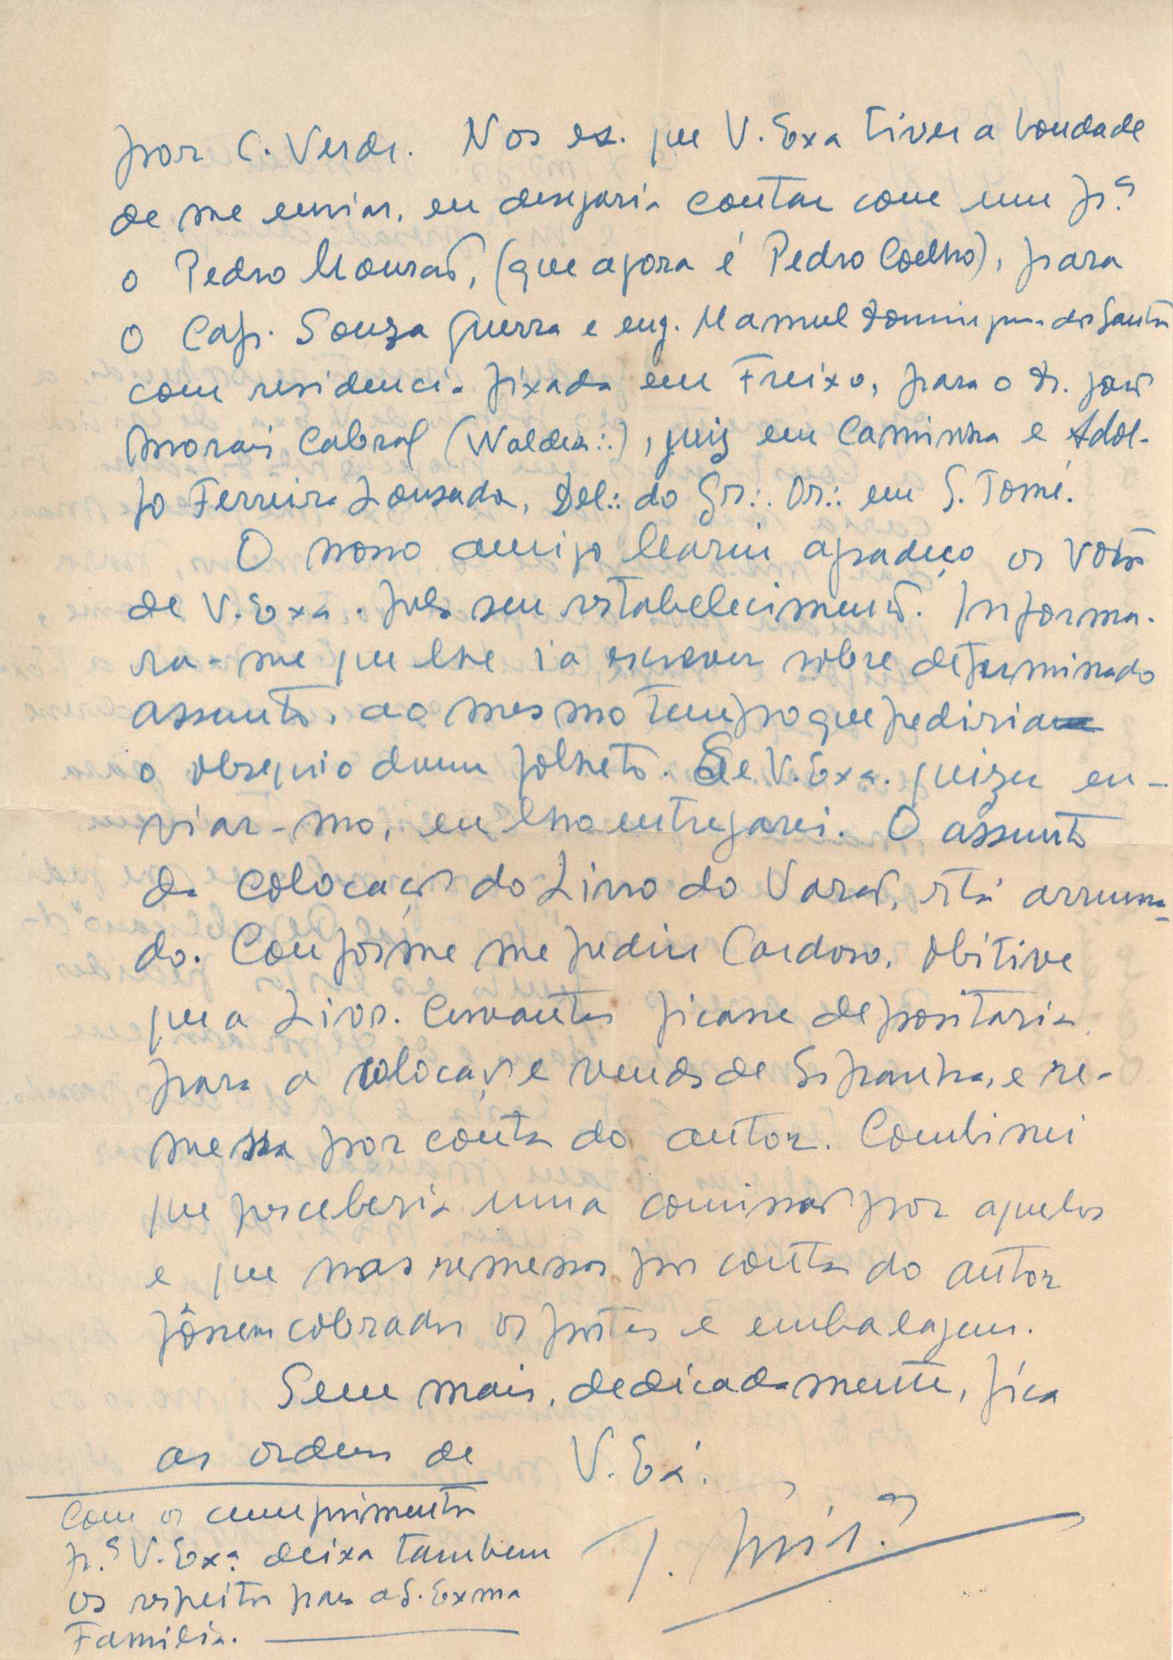 por C. Verde. Nos ex. que V. Exa tiver a bondade
de me enviar, eu desejaria contar com um p.ª
o Pedro Mourão, (que agora é Pedro Coelho), para
o Cap. Souza Guerra e eng. Manuel Domingues dos Santos
com residencia fixada em Freixo, para o Dr. José
Morais Cabral (Waldeck∴), juiz em Caminha e Adol-
fo Ferreira Louzada, Del∴ do Gr∴ Or∴ em S. Tomé.
O nosso amigo Marin agradeço os votos
de V. Exa. pelo seu restabelecimento. Informa-
ra-me que lhe ia escrever sobre determinado
assunto, ao mesmo tempo que pediria
o obsequio dum folheto. Se V. Exa. quizer en-
viar-mo, eu lho entregarei. O assunto
da colocação do Livro do Varão, está arruma-
do. Conforme me pediu Cardoso, obitive
que a Livr. Cervantes ficasse depositaria
para a colocação e venda de Espanha, e re-
messa por conta do autor. Combinei
que perceberia uma comissão por aqueles
e que nas remessas por conta do autor
fôssem cobrados os portes e embalagem.
Sem mais, dedicadamente, fica
as ordens de V. Exª.
Com os cumprimentos
p.ª V. Exª deixa tambem
os respeitos para a S. Exma
Familia.